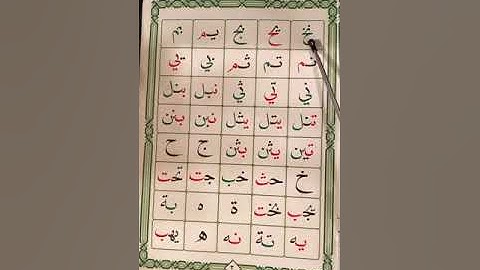 نخ يح بج يم بم
نم تم ثم
ني تي ثي نبل بنل
تنل يتل يثل نبن بنن
تين يثن بثن ج ح
خ حث خب جت تحت
يجب بخت ة ه بة
يه تة نه ه يهب